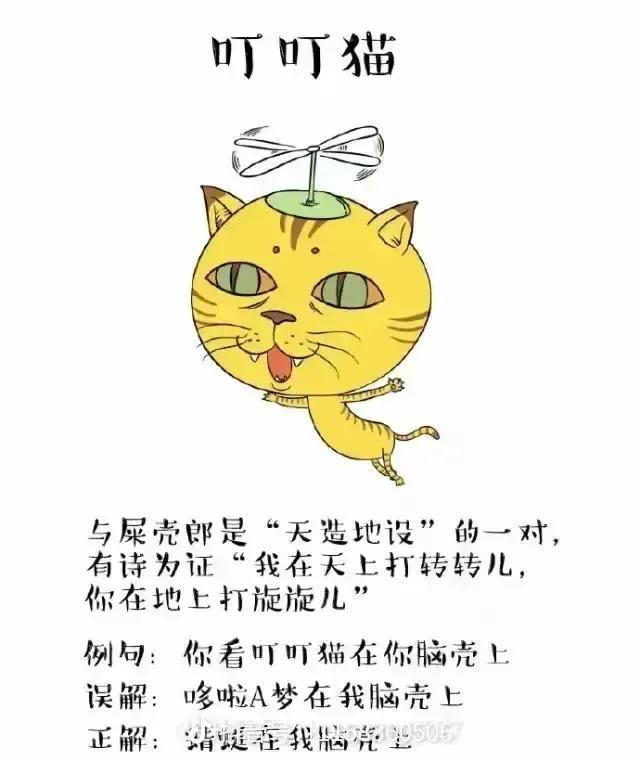 叮叮猫
与屎壳郎是“天造地设”的一对，
有诗为证“我在天上打转转儿，
你在地上打旋旋儿”
例句：你看叮叮猫在你脑壳上
误解：哆啦A梦在我脑壳上
正解：蜻蜓在我脑壳上